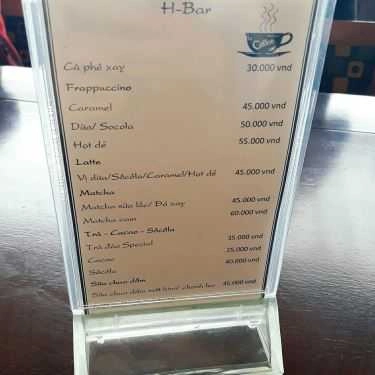 H-Bar
Coffee
Cà phê xay 30.000 vnd
Frappuccino
Caramel 45.000 vnd
Dừa/ Socola 50.000 vnd
Hạt dẻ 55.000 vnd
Latte
Vị dừa/Sôcôla/Caramel/Hạt dẻ 45.000 vnd
Matcha
Matcha sữa lắc/ Đá xay 45.000 vnd
Matcha cam 60.000 vnd
Trà - Cacao - Sôcôla
Trà đào Special 35.000 vnd
Cacao 35.000 vnd
Sôcôla 40.000 vnd
Sữa chua dầm
Sữa chua dầm mít 45.000 vnd